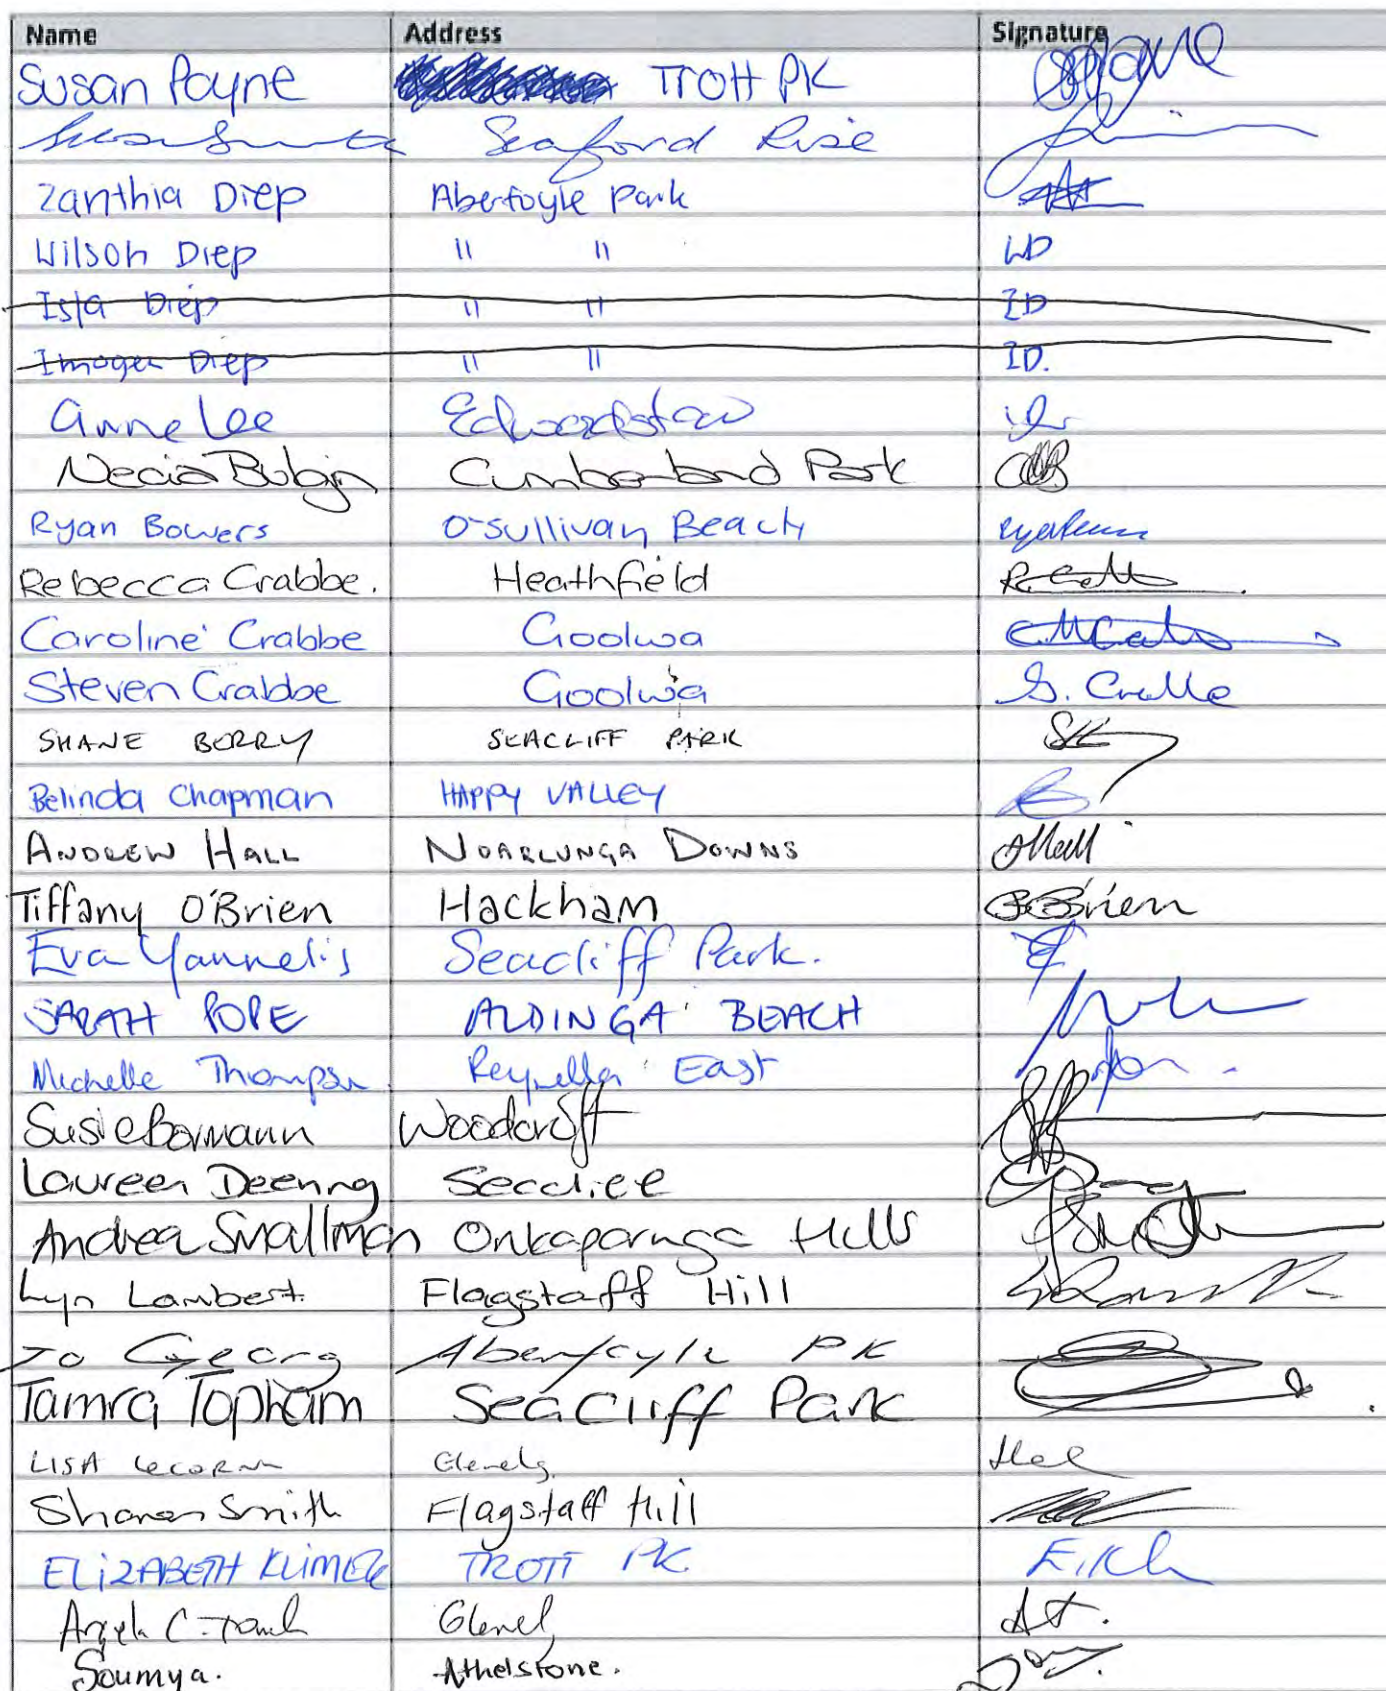 Name Address Signature
Susan Payne TROTT PK
Seaford Rise
Zanthia Diep Aberfoyle Park
Wilson Diep " " WD
Isla Diep " " ID
Imogen Diep " " ID.
Anne Lee Edwardstow
Necia Bulgin Cumberland Park
Ryan Bowers O'Sullivan Beach
Rebecca Crabbe. Heathfield
Caroline Crabbe Goolwa
Steven Crabbe Goolwa S. Crabbe
SHANE BERRY SEACLIFF PARK
Belinda Chapman HAPPY VALLEY
ANDREW HALL NOARLUNGA DOWNS AHall
Tiffany O'Brien Hackham O'Brien
Eva Yannelis Seacliff Park.
SARAH POPE ALDINGA BEACH
Michelle Thompson Reynella East
Susie Bormann Woodcroft
Laureen Deering Seacliff
Andrea Smallman Onkaparinga Hills
Lyn Lambert. Flagstaff Hill
Jo Georg Aberfoyle PK
Tamra Topham Seacliff Park
LISA Glenelg
Sharon Smith Flagstaff Hill
ELIZABETH KLIMEK TROTT PK
Angela Glenelg AT.
Soumya. Athelstone.